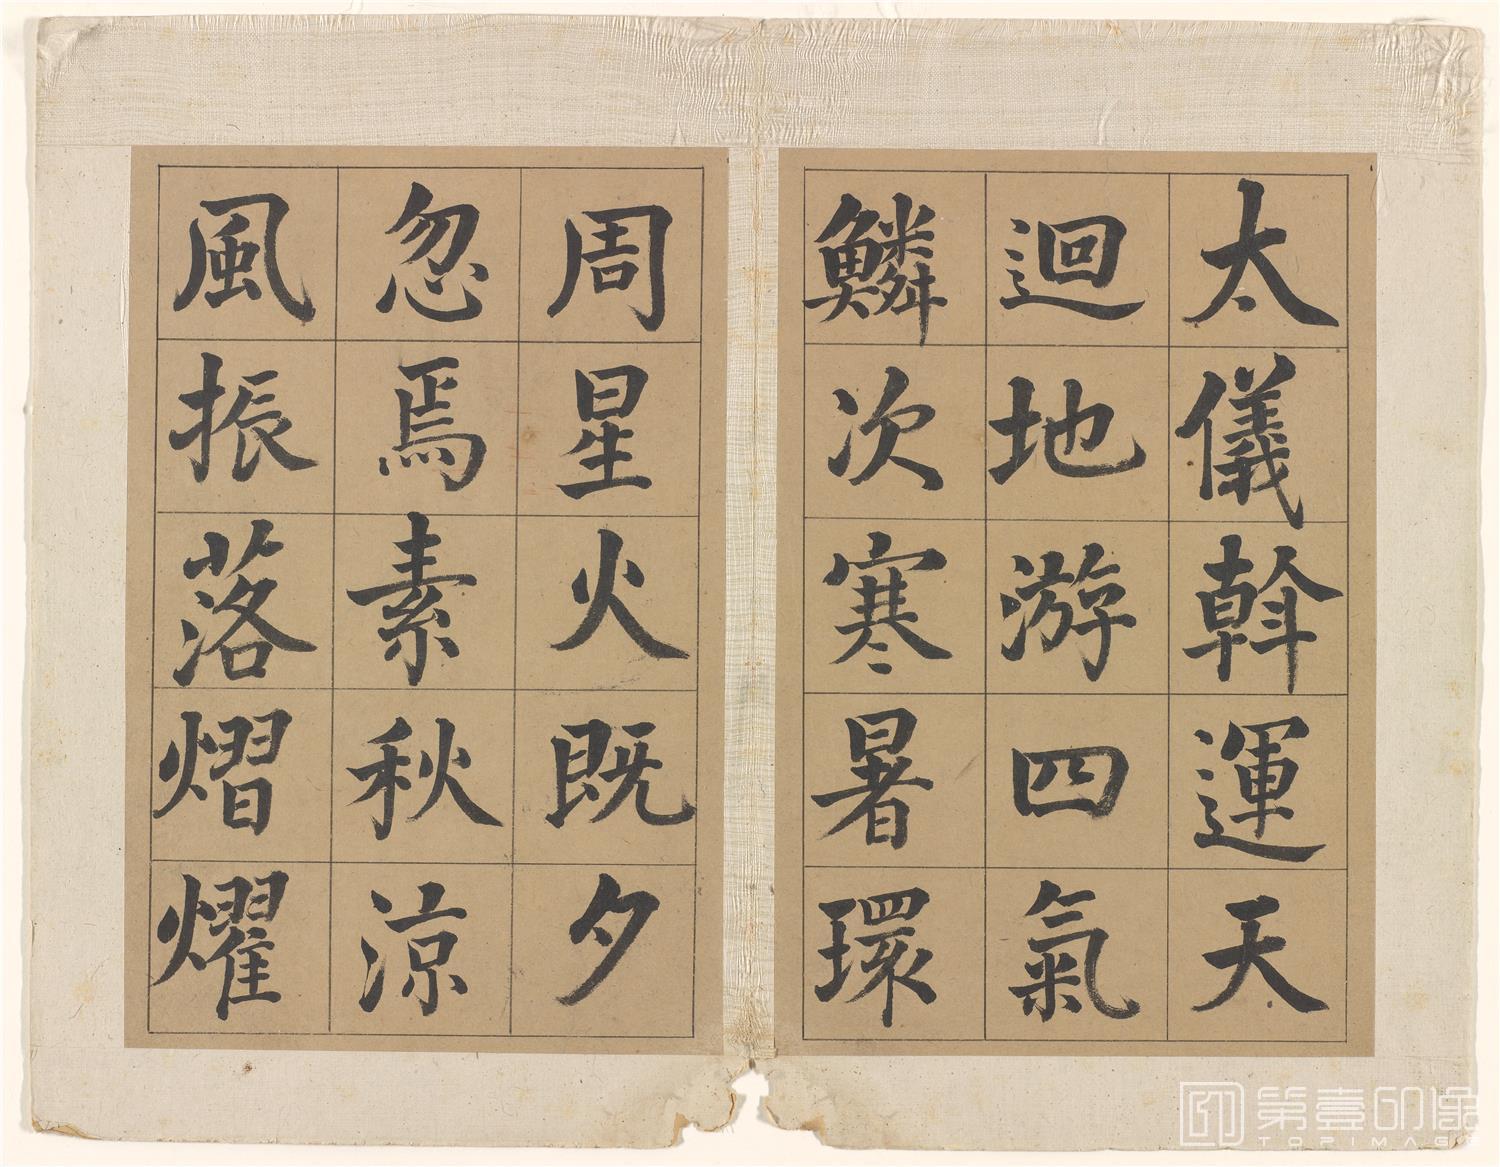 太儀斡運天
迴地游四氣
鱗次寒暑環
周星火既夕
忽焉素秋涼
風振落熠燿
第壹印像
TOPIMAGE